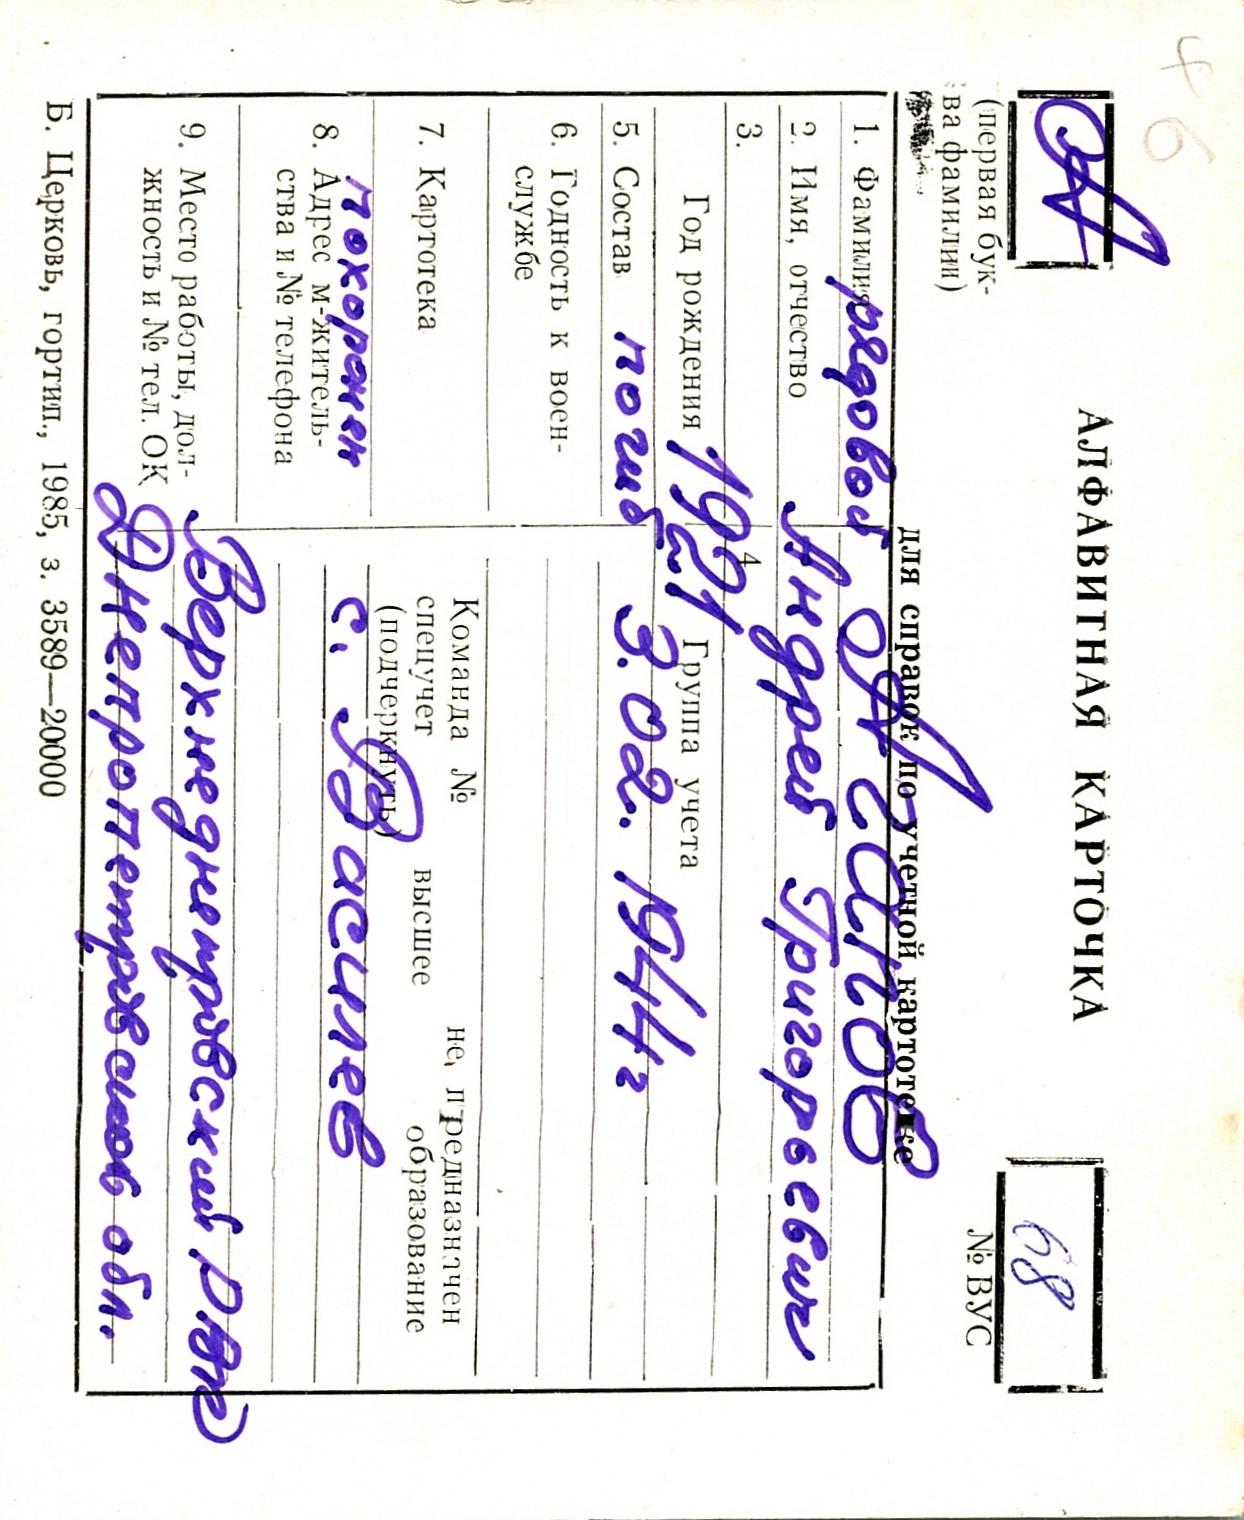 А
(первая бук-
ва фамилии)
АЛФАВИТНАЯ КАРТОЧКА
для справок по учетной картотеке
68
№ ВУС
1. Фамилия
рядовой Асипов
2. Имя, отчество
Андрей Григорьевич
3.
Год рождения 1921
4
Группа учета
5. Состав погиб 3.02.1944г
6. Годность к воен-
службе
7. Картотека
Команда № не предназначен
спецучет высшее образование
(подчеркнуть)
похоронен
8. Адрес м-житель-
ства и № телефона
с. Васильев
9. Место работы, дол-
жность и № тел. ОК
Верхнеднепровский р-
Днепропетровской обл.
Б. Церковь, гортип., 1985, з. 3589—20000
6